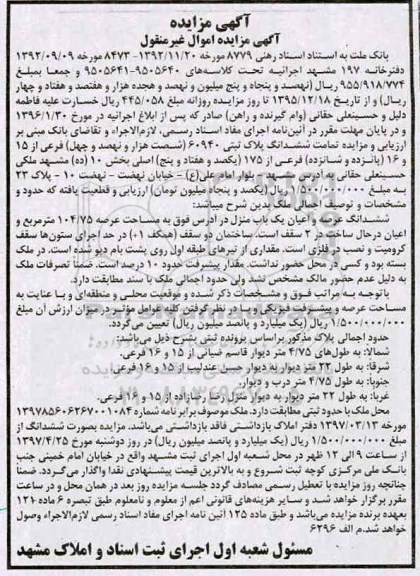 آگهی مزایده
آگهی مزایده اموال غیرمنقول
بانک ملت به استناد اسناد رهنی ۸۷۷۹ مورخه ۱۳۹۲/۱۱/۲۰- ۸۴۷۳ مورخه ۱۳۹۲/۰۹/۰۹
دفترخانه ۱۹۷ مشهد اجرائیه تحت کلاسه‌های ۹۵۰۵۶۴۰-۹۵۰۵۶۴۱ و جمعا بمبلغ
۹۵۵/۹۱۸/۷۷۴ ریال (نهصد و پنجاه و پنج میلیون و نهصد و هجده هزار و هفتصد و هفتاد و چهار
ریال) و از تاریخ ۱۳۹۵/۱۲/۱۸ تا روز مزایده روزانه مبلغ ۴۴۵/۰۵۸ ریال خسارت علیه فاطمه
دلیل و حسینعلی حقانی (وام گیرنده و راهن) صادر که پس از ابلاغ اجرائیه در مورخ ۱۳۹۶/۱/۳۰
و در پایان مهلت مقرر در آئین‌نامه اجرای مفاد اسناد رسمی، لازم‌الاجراء و تقاضای بانک مبنی بر
ارزیابی و مزایده تمامت ششدانگ پلاک ثبتی ۶۰۹۴۰ (شصت هزار و نهصد و چهل) فرعی از ۱۵
و ۱۶ (پانزده و شانزده) فرعی از ۱۷۵ (یکصد و هفتاد و پنج) اصلی بخش ۱۰ (ده) مشهد ملکی
حسینعلی حقانی به آدرس مشهد - بلوار امام علی(ع) - خیابان نهضت - نهضت ۱۰ - پلاک ۲۳
به مبلغ ۱/۵۰۰/۰۰۰/۰۰۰ ریال (یکصد و پنجاه میلیون تومان) ارزیابی و قطعیت یافته که حدود و
مشخصات و توصیف اجمالی ملک بدین شرح میباشد:
ششدانگ عرصه و اعیان یک باب منزل در آدرس فوق به مساحت عرصه ۱۰۴/۷۵ مترمربع و
اعیان درحال ساخت در ۲ سقف است. ساختمان دو سقف (همکف +۱) در حد اجرای ستون‌ها سقف
کرومیت و نصب در فلزی است. مقداری از تیرهای طبقه اول روی پشت بام دپو شده است. در ملک
بسته بود و کسی در محل حضور نداشت. مقدار پیشرفت حدود ۱۰ درصد است. ضمنا تصرفات ملک
به دلیل عدم حضور مالک مشخص نشد ولی حدود اجمالی ملک با سند مطابقت دارد.
باتوجه به مراتب فوق و مشخصات ذکر شده و موقعیت محلی و منطقه‌ای و با عنایت به
مساحت عرصه و پیشرفت فیزیکی و با در نظر گرفتن کلیه عوامل مؤثر در میزان ارزش آن مبلغ
۱/۵۰۰/۰۰۰/۰۰۰ ریال (یک میلیارد و پانصد میلیون ریال) تعیین می‌گردد.
حدود اجمالی پلاک مذکور براساس پرونده ثبتی بشرح ذیل می‌باشد:
شمالا: به طول‌های ۴/۷۵ متر دیوار قاسم ضیائی از ۱۵ و ۱۶ فرعی.
شرقا: به طول ۲۲ متر دیوار به دیوار حسن عندلیب از ۱۵ و ۱۶ فرعی.
جنوبا: به طول ۴/۷۵ متر درب و دیوار.
غربا: به طول ۲۲ متر دیوار به دیوار منزل رضا رضازاده از ۱۵ و ۱۶ فرعی.
محل ملک با حدود ثبتی مطابقت دارد. ملک موصوف برابر نامه شماره ۱۳۹۷۸۵۶۰۶۲۶۷۰۰۱۰۸۴
مورخه ۱۳۹۷/۰۳/۱۳ دفتر املاک بازداشتی فاقد بازداشتی می‌باشد. مزایده بصورت ششدانگ از
مبلغ ۱/۵۰۰/۰۰۰/۰۰۰ ریال (یک میلیارد و پانصد میلیون ریال) در روز دوشنبه مورخ ۱۳۹۷/۴/۲۵
از ساعت ۹ الی ۱۲ ظهر در محل شعبه اول اجرای ثبت مشهد واقع در خیابان امام خمینی جنب
بانک ملی مرکزی کوچه ثبت شروع و به بالاترین قیمت پیشنهادی نقدا واگذار می‌گردد. ضمناً
چنانچه روز مزایده با تعطیل رسمی مصادف گردد جلسه مزایده روز بعد در همان محل و در ساعت
مقرر برگزار خواهد شد و سایر هزینه‌های قانونی اعم از معلوم و نامعلوم طبق تبصره ۶ ماده ۱۲۱
بعهده برنده مزایده می‌باشد و طبق ماده ۱۲۵ آئین نامه اجرای مفاد اسناد رسمی لازم‌الاجراء وصول
خواهد شد. م الف ۶۲۹۶
مسئول شعبه اول اجرای ثبت اسناد و املاک مشهد